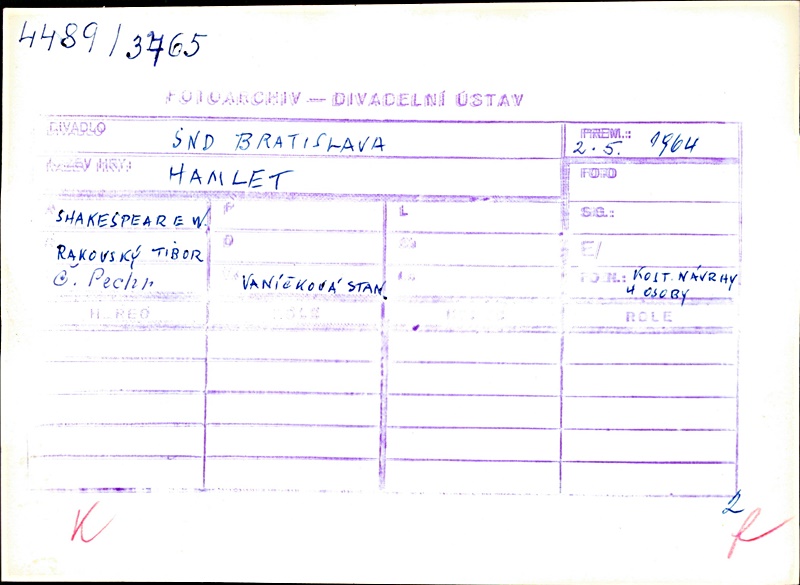 4489/3765
FOTOARCHIV — DIVADELNÍ ÚSTAV
DIVADLO SND BRATISLAVA
PREM.: 2.5. 1964
NÁZEV HRY: HAMLET
FOTO
SHAKESPEARE W.
P
L
SG.:
RAKOVSKÝ TIBOR
O
E/
Č. Pechr
VANÍČKOVÁ STAN.
POZN.: KOST. NÁVRHY
4 OSOBY
HEREC
ROLE
ROLE
2
K